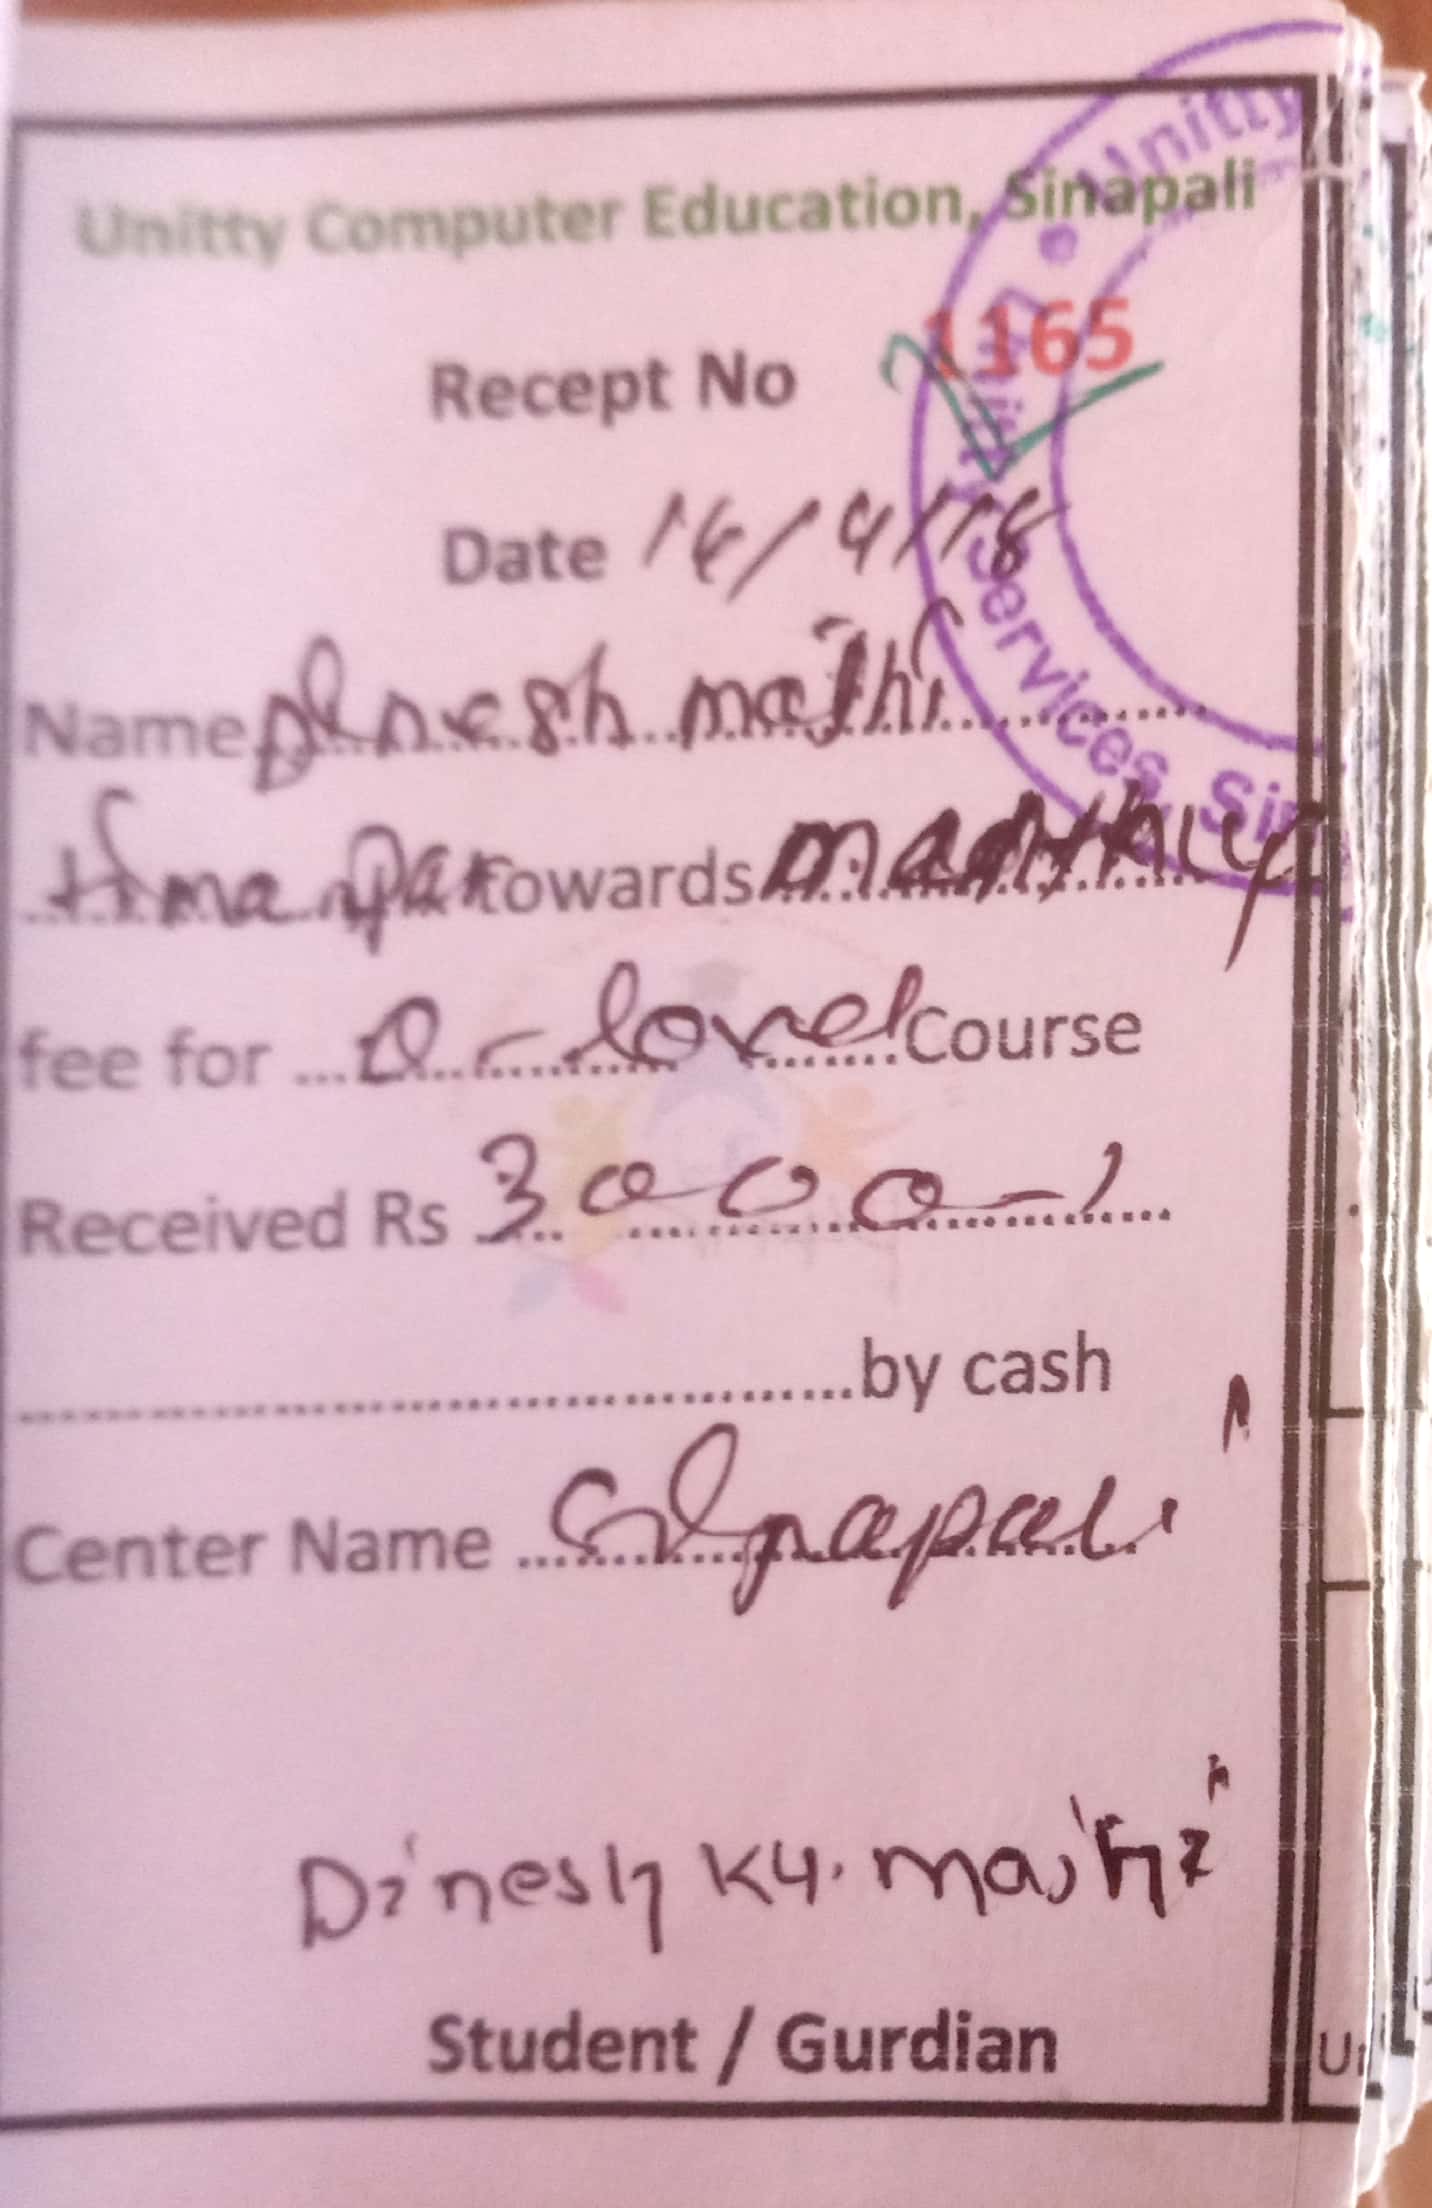 Unitty Computer Education, Sinapali
Recept No 1165
Date 16/4/18
Name Dinesh majhi
towards monthly
fee for O-level Course
Received Rs 3000-/
by cash
Center Name Sinapali
Dinesh Ku. majhi
Student / Gurdian
Unitty Services, Si
Unitty